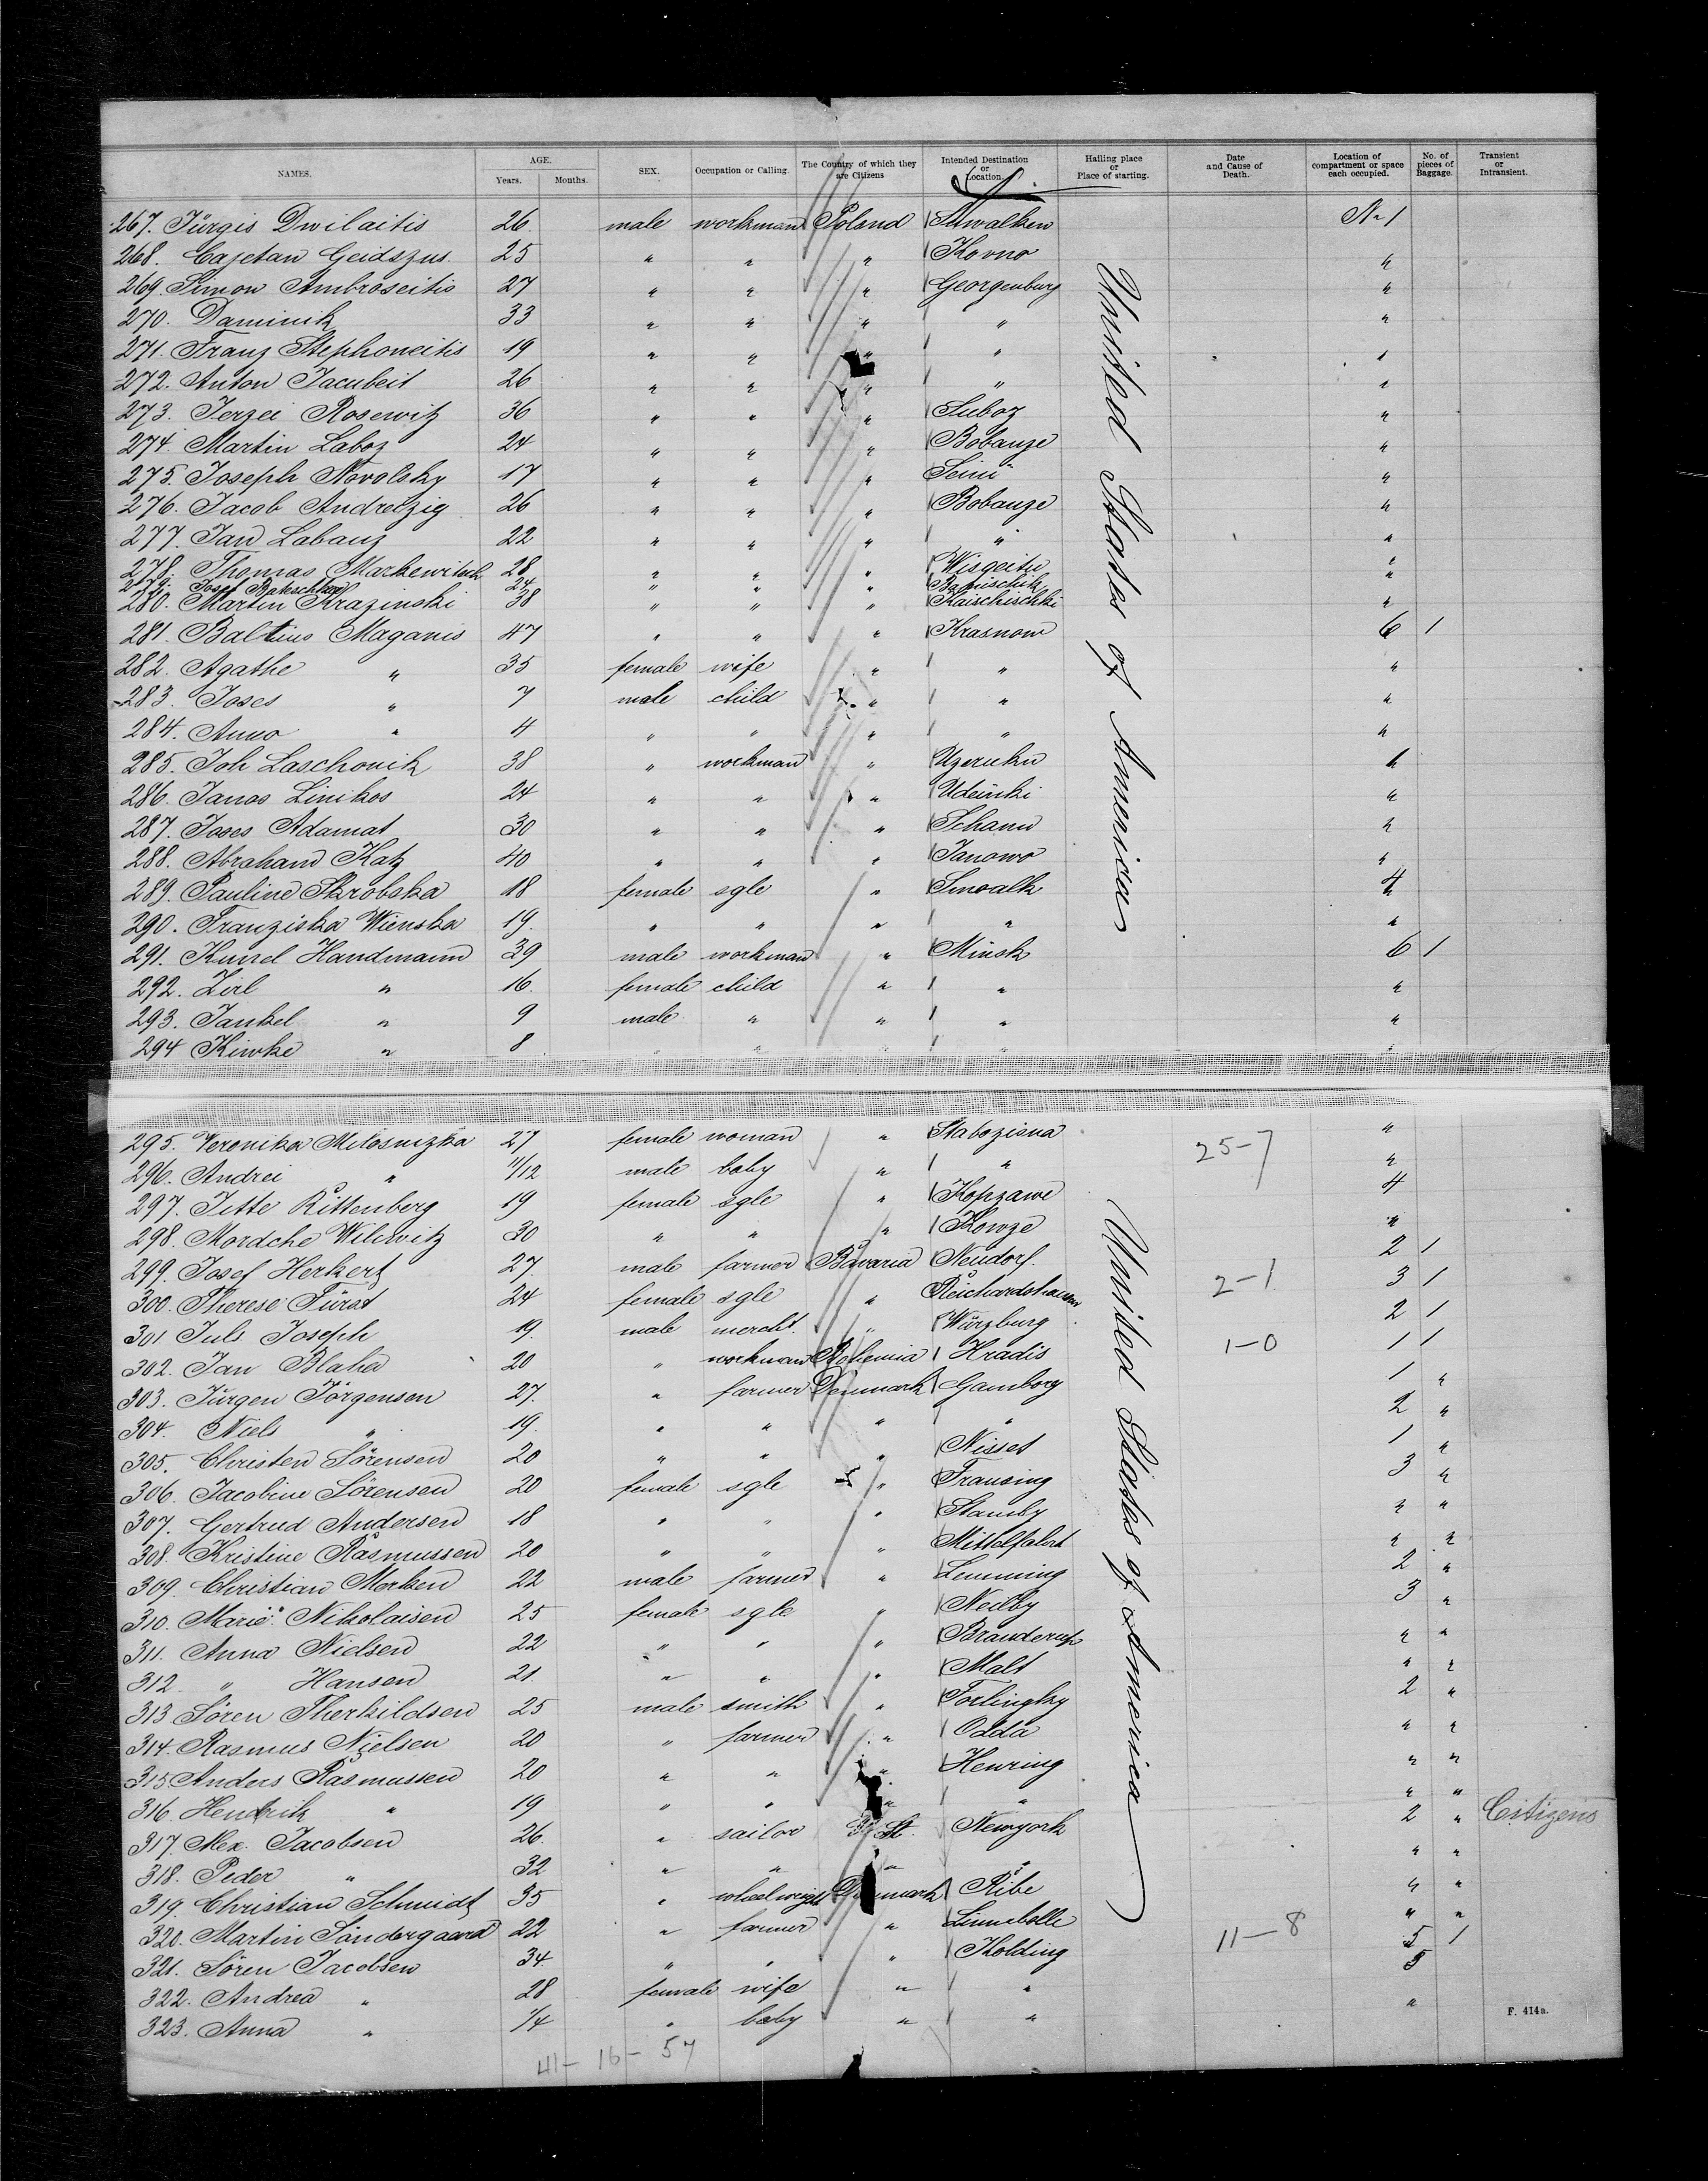 NAMES. AGE. Years. Months. SEX. Occupation or Calling. The Country of which they are Citizens Intended Destination or Location. Hailing place or Place of starting. Date and Cause of Death. Location of compartment or space each occupied. No. of pieces of Baggage. Transient or Intransient.
267. Jürgis Dwilaitis 26. male workman Poland Suwalken No 1
268. Cajetan Geidszus. 25 " " " Kovno "
269. Simon Ambroseitis 27 " " " Georgenburg "
270. Daminik 33 " " " " "
271. Franz Stephoneitis 19 " " " " "
272. Anton Jacubeit 26 " " " " "
273. Jerzei Rosewitz 36 " " " Suboz "
274. Martin Laboz 24 " " " Bobauze "
275. Joseph Novolsky 17 " " " "
276. Jacob Andrelzig 26 " " " Bobauze "
277. Jan Labauz 22 " " " " "
278. Thomas Markewitsch 28 " " " Wisgeitu "
279. Josef 24 " " " "
280. Martin Krazinski 38 " " " Kaischischki "
281. Baltius Maganis 47 " " " Krasnow 6 1
282. Agathe " 35 female wife " " "
283. Joses " 7 male child " " "
284. Anno " 4 " " " " "
285. Joh Laschonik 38 " workman " Uzeruku 1
286. Janos Linikos 24 " " " Udeinki "
287. Joses Adamat 30 " " " Schanu "
288. Abraham Katz 40 " " " Janowo "
289. Pauline Skrobska 18 female sgle " Suwalk 4
290. Franziska Wienska 19. " " " " "
291. Kusiel Handmann 39 male workman " Minsk 6 1
292. Zirl " 16. female child " " "
293. Jankel " 9 male " " " "
294 Kiwke " 8 " " " " "
295. Veronika Milosnizka 27 female woman " Staboziana "
25-7
296. Andrei " 11/12 male baby " " "
297. Jette Rittenberg 19 female sgle " Kopzawe 4
298. Mordche Wilewitz 30 " " " Kowze "
299. Josef Herkert 27 male farmer Bavaria Neudorf. 2 1
2-1
300. Therese Fürst 24 female sgle " Reichardshausen 3 1
301 Juls Joseph 19. male mercht. " Würzburg 2 1
302. Jan Blaha 20 " workman Bohemia Hradis 1-0 1 1
303. Jürgen Jörgensen 27. " farmer Denmark Gamborg 1 "
304. Niels " 19. " " " " 2 "
305. Christen Sörensen 20 " " " Nisset 1 "
306. Jacobine Sörensen 20 female sgle " Frausing 3 "
307. Gertrud Andersen 18 " " " Stamby " "
308. Kristine Rasmussen 20 " " " Mittelfahrt " "
309. Christian Morken 22 male farmer " Lemming 2 "
310. Marie Nikolaisen 25 female sgle " Neuby 3 "
311. Anna Nielsen 22 " " " Branderup " "
312. " Hansen 21. " " " Malt " "
313 Sören Therkildsen 25 male smith " 2 "
314. Rasmus Nielsen 20 " farmer " Odda " "
315. Anders Rasmussen 20 " " " Henring " "
316. Hendrik " 19 " " " " " "
317. Alex. Jacobsen 26. " sailor St. Newyork 2 " Citizens
318. Peder " 32 " " " " " "
319. Christian Schmidt 35 " Denmark Ribe " "
320. Martin Söndergaard 22 " farmer " Linnebolle " "
11-8
321. Sören Jacobsen 34 " " " Kolding 5 1
322. Andrea " 28 female wife " " 5
323. Anna " 1/4 " baby " " "
United States of America
United States of America
41- 16- 57
F. 414a.